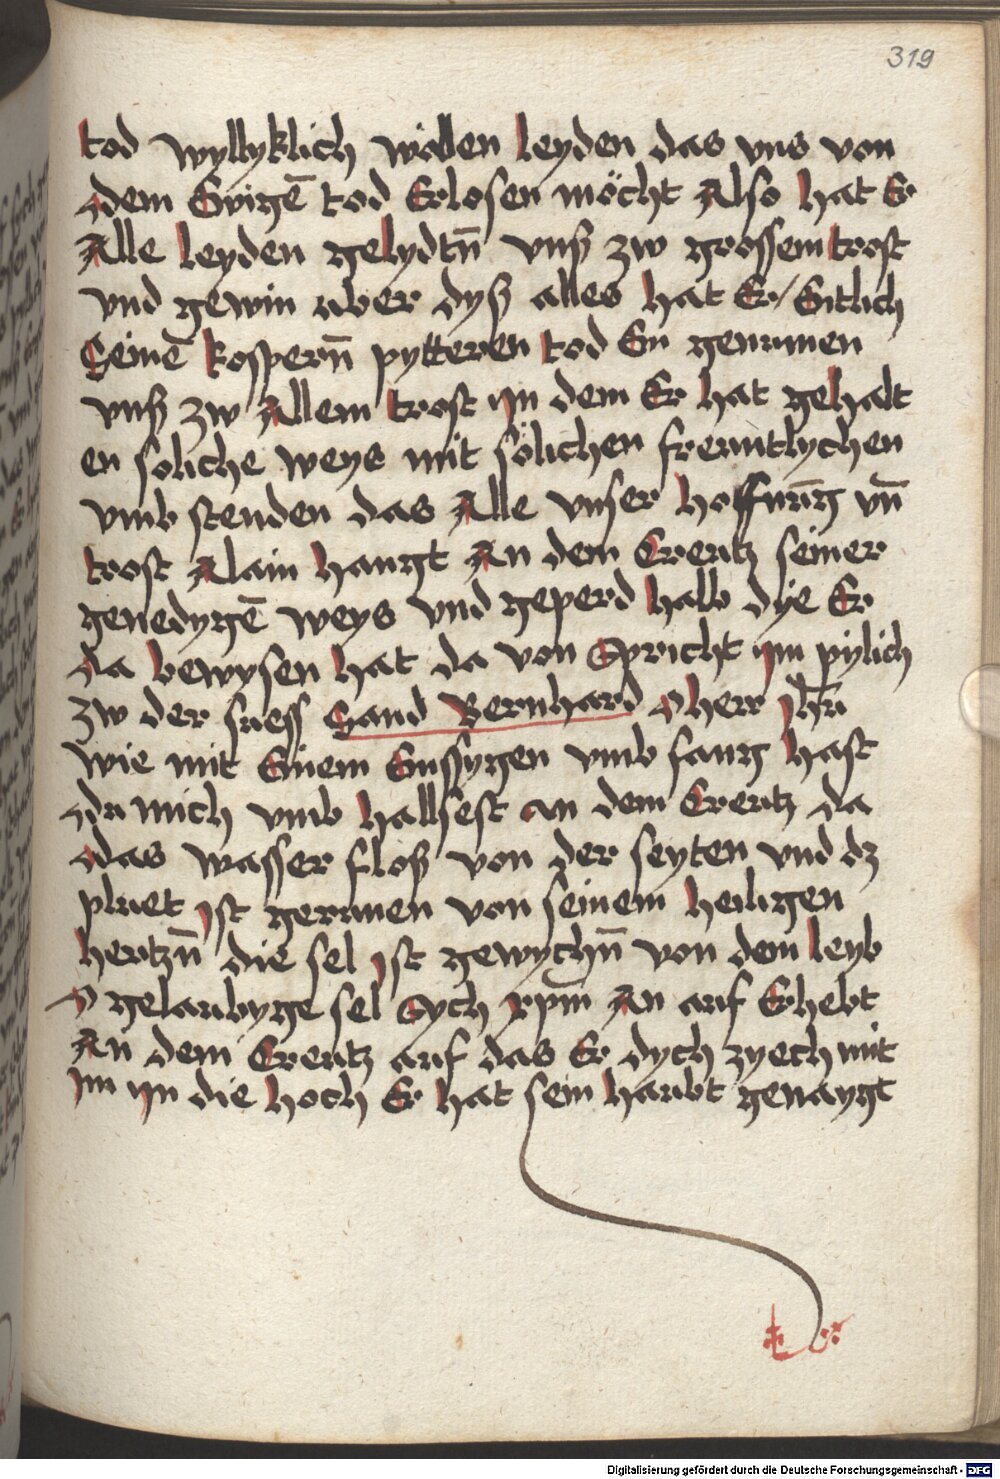 319
tod wyllyklich wöllen leyden das vns von
dem Ewigē tod Erlosen möcht Also hat Er
Alle leyden gelydtn̄ vnß zw grossem trost
vnd gewin aber dyß alles hat Er / Entlich
Seinē kospern̄ pytteren tod Ein genumen
vnß zw Allem trost yn dem Er hat gehalt
en soliche weys mit sölichen freuntlychen
vmb stenden das Alle vnser hoffnūg vn̄
trost Alain hangt An dem Creutz seiner
genedygē weys vnd geperd halb dye Er
da bewysen hat da von Spricht ym pylich
zw der suess Sand Bernhard O herr Jhū
wie mit Einem Enssygen vmb fang hast
du mich vmb hallsest an dem Creutz da
das wasser floß von der seyten vnd dz
pluet ist gerunen von seinem heiligen
hertzn̄ die sel ist gewychn̄ von dem leyb
O gelaubyge sel Sych xpm̄ An auf Erhebt
An dem Creutz auf das Er dych zyech mit
Im yn die hoch Er hat sein haubt genaygt
Digitalisierung gefördert durch die Deutsche Forschungsgemeinschaft - DFG